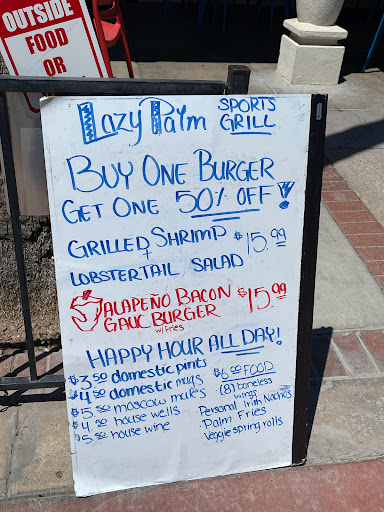 OUTSIDE
FOOD
OR
Lazy Palm SPORTS
GRILL
BUY ONE BURGER
GET ONE 50% OFF!
GRILLED SHRIMP $15.99
+
LOBSTERTAIL SALAD
JALAPEÑO BACON $15.99
GAUC BURGER
w/fries
HAPPY HOUR ALL DAY!
$3.50 domestic pints
$4.50 domestic mugs
$5.50 moscow mules
$4.50 house wells
$5.50 house wine
$6.00 FOOD
(8) boneless
wings
Personal Irish Nachos
Palm Fries
Veggie spring rolls